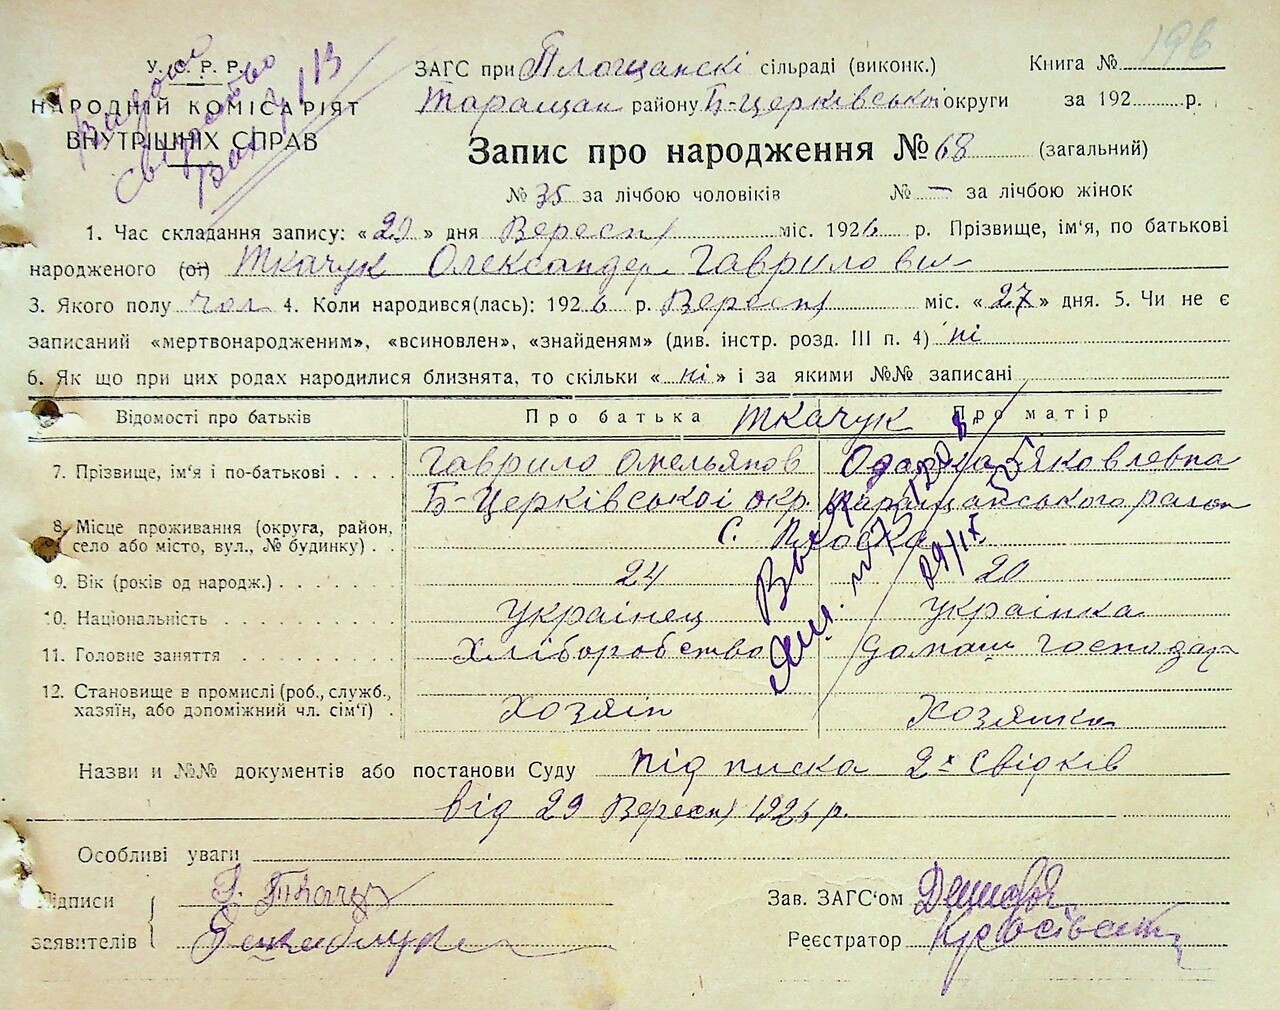 196
У. С. Р. Р.
НАРОДНІЙ КОМІСАРІЯТ
ВНУТРІШНІХ СПРАВ
ЗАГС при Площанскі сільраді (виконк.) Книга №
Таращан району Б-Церківської округи за 192 р.
Запис про народження № 68 (загальний)
№ 35 за лічбою чоловіків № — за лічбою жінок
1. Час складання запису: « 29 » дня Вересн міс. 1926 р. Прізвище, ім'я, по батькові
народженого (ої) Ткачук Олександер Гаврилови-
3. Якого полу чол 4. Коли народився(лась): 1926 р. Вересня міс. « 27 » дня. 5. Чи не є
записаний «мертвонародженим», «всиновлен», «знайденям» (див. інстр. розд. III п. 4) ні
6. Як що при цих родах народилися близнята, то скільки « ні » і за якими №№ записані
Відомості про батьків Про батька Ткачук Про матір
7. Прізвище, ім'я і по-батькові . . . . Гаврило Омельянов Одарка Яковлевна
Б-Церківської окр. Таращанського район
8. Місце проживання (округа, район,
село або місто, вул., № будинку) . . с. Плоска
9. Вік (років од народж.) . . . . . . 24 20
10. Національність . . . . . . . . . українец українка
11. Головне заняття . . . . . . . . Хліборобство домаш господар
12. Становище в промислі (роб., служб.,
хазяїн, або допоміжний чл. сім'ї) . Хозяїн Хозяшка
Назви и №№ документів або постанови Суду підписка 2х свідків
від 29 Вересня 1926 р.
29/IX
Особливі уваги
Підписи Г. Ткачук Зав. ЗАГС'ом
заявителів Реєстратор